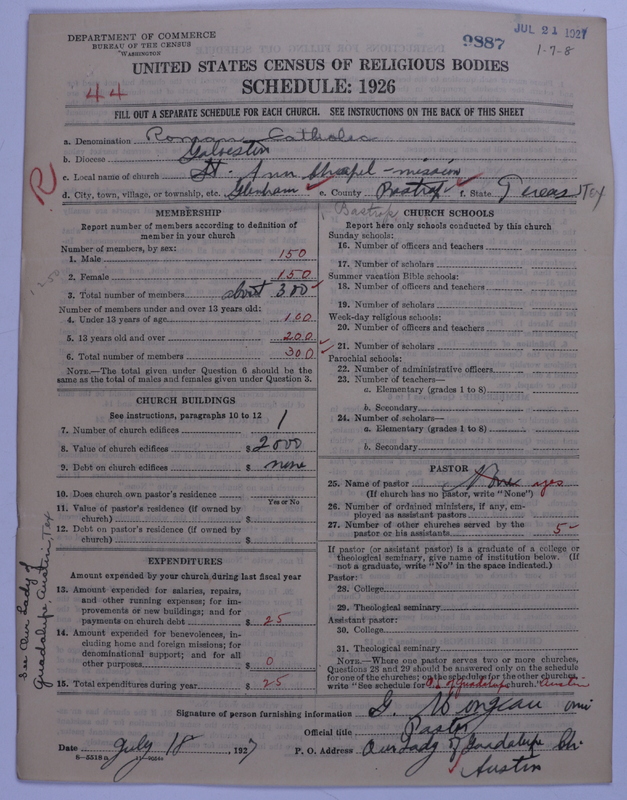 DEPARTMENT OF COMMERCE
BUREAU OF THE CENSUS
WASHINGTON
9887
JUL 21 1927
1-7-8
UNITED STATES CENSUS OF RELIGIOUS BODIES
44
SCHEDULE: 1926
FILL OUT A SEPARATE SCHEDULE FOR EACH CHURCH. SEE INSTRUCTIONS ON THE BACK OF THIS SHEET
a. Denomination Roman Catholic
b. Diocese Galveston
c. Local name of church St. Ann Chapel - mission
R
d. City, town, village, or township, etc. e. County Bastrop f. State Texas Tex
Bastrop
MEMBERSHIP
Report number of members according to definition of
member in your church
Number of members, by sex:
1. Male 150
2. Female 150
3. Total number of members about 300
Number of members under and over 13 years old:
4. Under 13 years of age 100
5. 13 years old and over 200
6. Total number of members 300
NOTE.—The total given under Question 6 should be the
same as the total of males and females given under Question 3.
CHURCH BUILDINGS
See instructions, paragraphs 10 to 12
7. Number of church edifices 1
8. Value of church edifices $ 2000
9. Debt on church edifices $ none
10. Does church own pastor's residence
Yes or No
11. Value of pastor's residence (if owned by
church) $
12. Debt on pastor's residence (if owned by
church) $
EXPENDITURES
Amount expended by your church during last fiscal year
13. Amount expended for salaries, repairs,
and other running expenses; for im-
provements or new buildings; and for
payments on church debt $ 25
14. Amount expended for benevolences, in-
cluding home and foreign missions; for
denominational support; and for all
other purposes $ 0
15. Total expenditures during year $ 25
See Our Lady of
Guadalupe Austin, Tex
CHURCH SCHOOLS
Report here only schools conducted by this church
Sunday schools:
16. Number of officers and teachers
17. Number of scholars
Summer vacation Bible schools:
18. Number of officers and teachers
19. Number of scholars
Week-day religious schools:
20. Number of officers and teachers
21. Number of scholars
Parochial schools:
22. Number of administrative officers
23. Number of teachers—
a. Elementary (grades 1 to 8)
b. Secondary
24. Number of scholars—
a. Elementary (grades 1 to 8)
b. Secondary
PASTOR
25. Name of pastor None yes
(If church has no pastor, write "None")
26. Number of ordained ministers, if any, em-
ployed as assistant pastors
27. Number of other churches served by the
pastor or his assistants 5
If pastor (or assistant pastor) is a graduate of a college or
theological seminary, give name of institution below. (If
not a graduate, write "No" in the space indicated.)
Pastor:
28. College
29. Theological seminary
Assistant pastor:
30. College
31. Theological seminary
NOTE.—Where one pastor serves two or more churches,
Questions 28 and 29 should be answered only on the schedule
for one of the churches; on the schedules for the other churches,
write "See schedule for O.L. of Guadalupe church." Austin
Signature of person furnishing information omi
Official title Pastor
Date July 18, 1927
P. O. Address Our Lady of Guadalupe Ch.
Austin